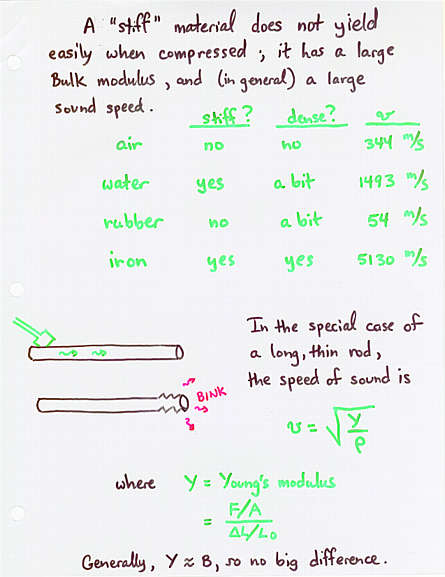 A "stiff" material does not yield
easily when compressed ; it has a large
Bulk modulus , and (in general) a large
sound speed .
stiff ? dense? v
air no no 344 m/s
water yes a bit 1493 m/s
rubber no a bit 54 m/s
iron yes yes 5130 m/s
In the special case of
a long, thin rod ,
the speed of sound is
BINK
v = √(Y/ρ)
where Y = Young's modulus
= (F/A)/(ΔL/L₀)
Generally, Y ≈ B, so no big difference .